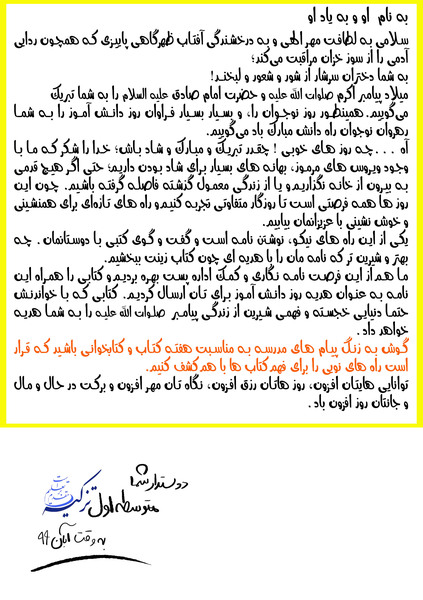 به نام او و به یاد او
سلامی به لطافت مهر الهی و به درخشندگی آفتاب ظهرگاهی پاییزی که همچون ردایی
آدمی را از سوز خزان مراقبت می‌کند؛
به شما دختران سرشار از شور و شعور و لبخند!
میلاد پیامبر اکرم صلوات الله علیه و حضرت امام صادق علیه السلام را به شما تبریک
می‌گوییم. همینطور روز نوجوان را، و بسیار بسیار فراوان روز دانش آموز را به شما
رهروان نوجوان راه دانش مبارک باد می‌گوییم.
آه ... چه روز های خوبی ! چقدر تبریک و مبارک و شاد باش؛ خدا را شکر که ما با
وجود ویروس های مرموز، بهانه های بسیار برای شاد بودن داریم؛ حتی اگر هیچ قدمی
به بیرون از خانه نگذاریم و یا از زندگی معمول گذشته فاصله گرفته باشیم. چون این
روز ها همه فرصتی است تا روزگار متفاوتی تجربه کنیم و راه های تازه‌ای برای همنشینی
و خوش نشینی با عزیزانمان بیابیم.
یکی از این راه های نیکو، نوشتن نامه است و گفت و گوی کتبی با دوستانمان. چه
بهتر و شیرین تر که نامه مان را با هدیه ای چون کتاب زینت ببخشیم.
ما هم از این فرصت نامه نگاری و کمک اداره پست بهره بردیم و کتابی را همراه این
نامه به عنوان هدیه روز دانش آموز برای تان ارسال کردیم. کتابی که با خواندنش
حتما دنیایی خجسته و فهمی شیرین از زندگی پیامبر صلوات الله علیه را به شما هدیه
خواهد داد.
گوش به زنگ پیام های مدرسه به مناسبت هفته کتاب و کتابخوانی باشید که قرار
است راه های نویی را برای فهم کتاب ها با هم کشف کنیم.
توانایی هایتان افزون، روز هاتان رزق افزون، نگاه تان مهر افزون و برکت در حال و مال
و جانتان روز افزون باد.
دوستدار شما
متوسطه اول تزکیه
به وقت آبان ۹۹